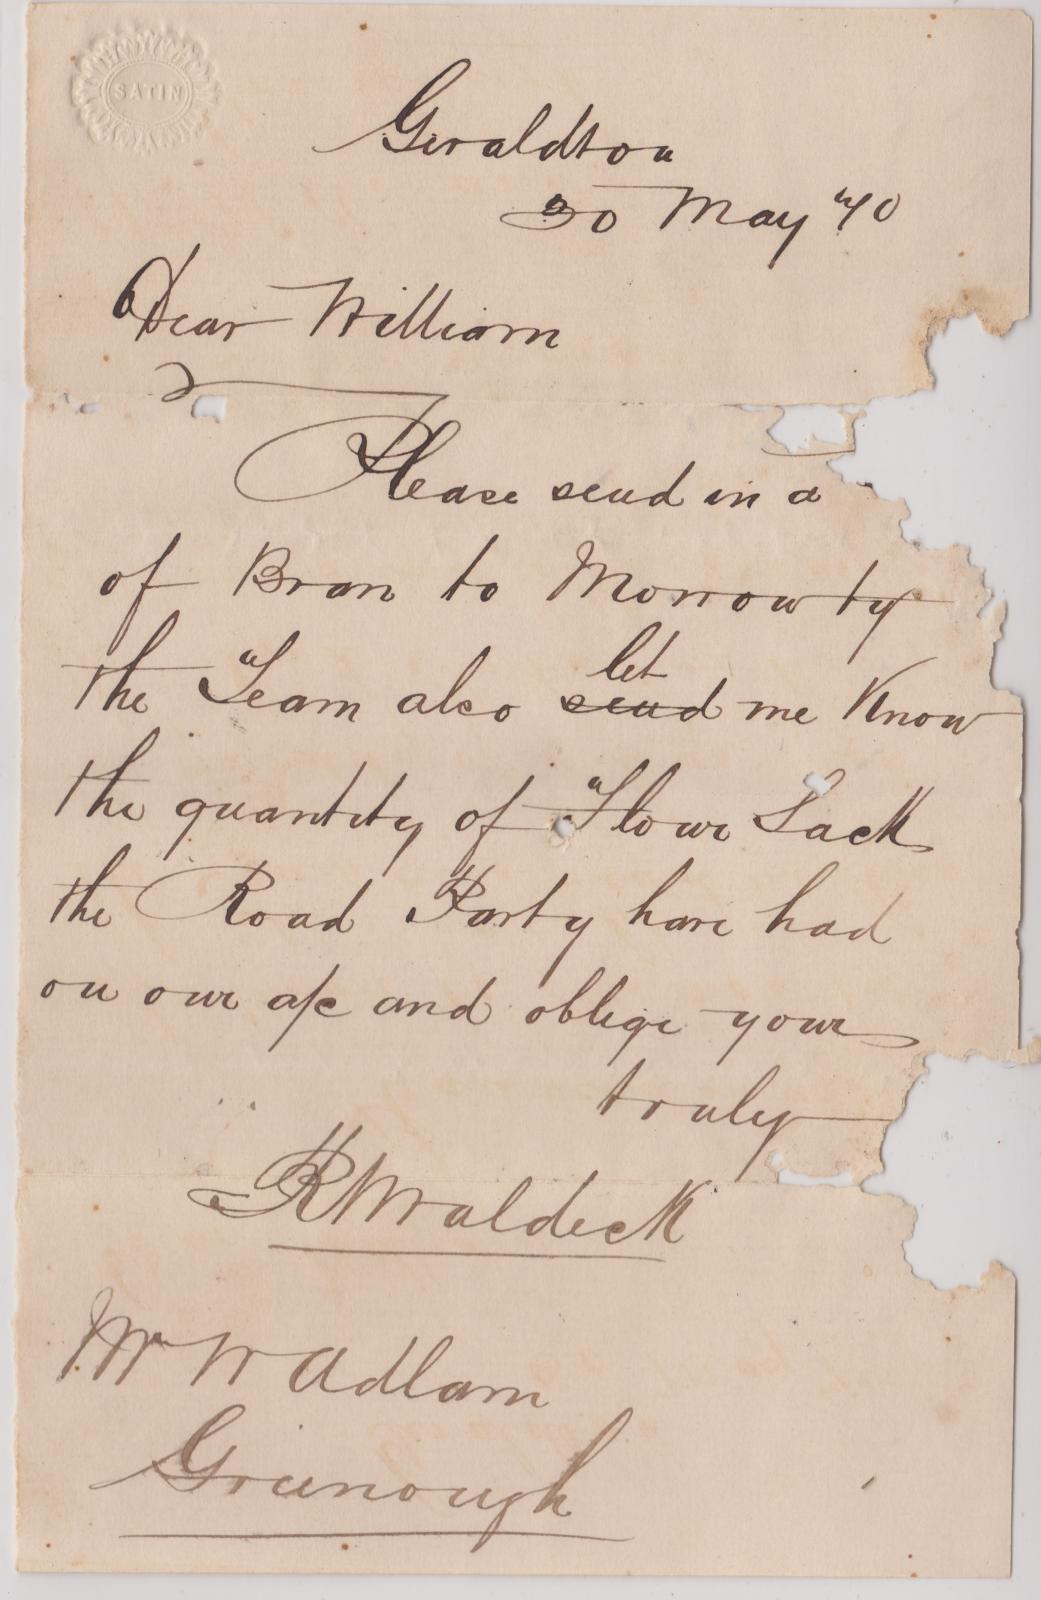 SATIN
Geraldton
30 May 70
Dear William
Please send in a
of Bran to Morrow by
the Team also ~~send~~ let me Know
the quantity of Flour Sack
the Road Party have had
on our a/c and oblige your
truly
R Waldeck
Mr W Adlam
Greenough